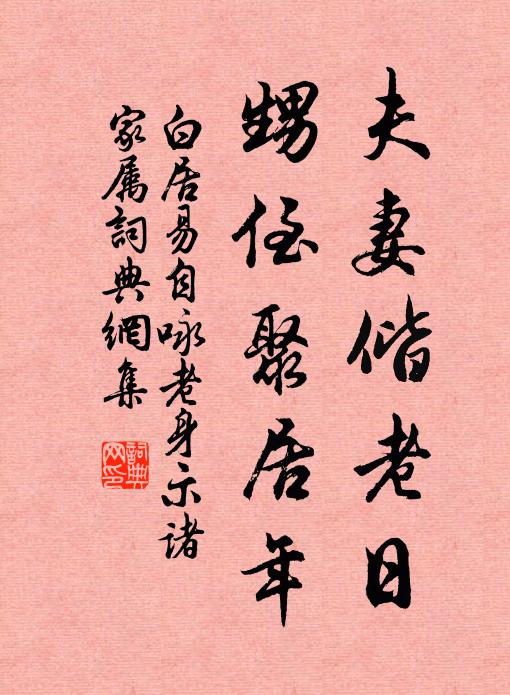 夫妻偕老日
甥侄聚居年
白居易自咏老身示诸
家属詞典網集
詞典
网印